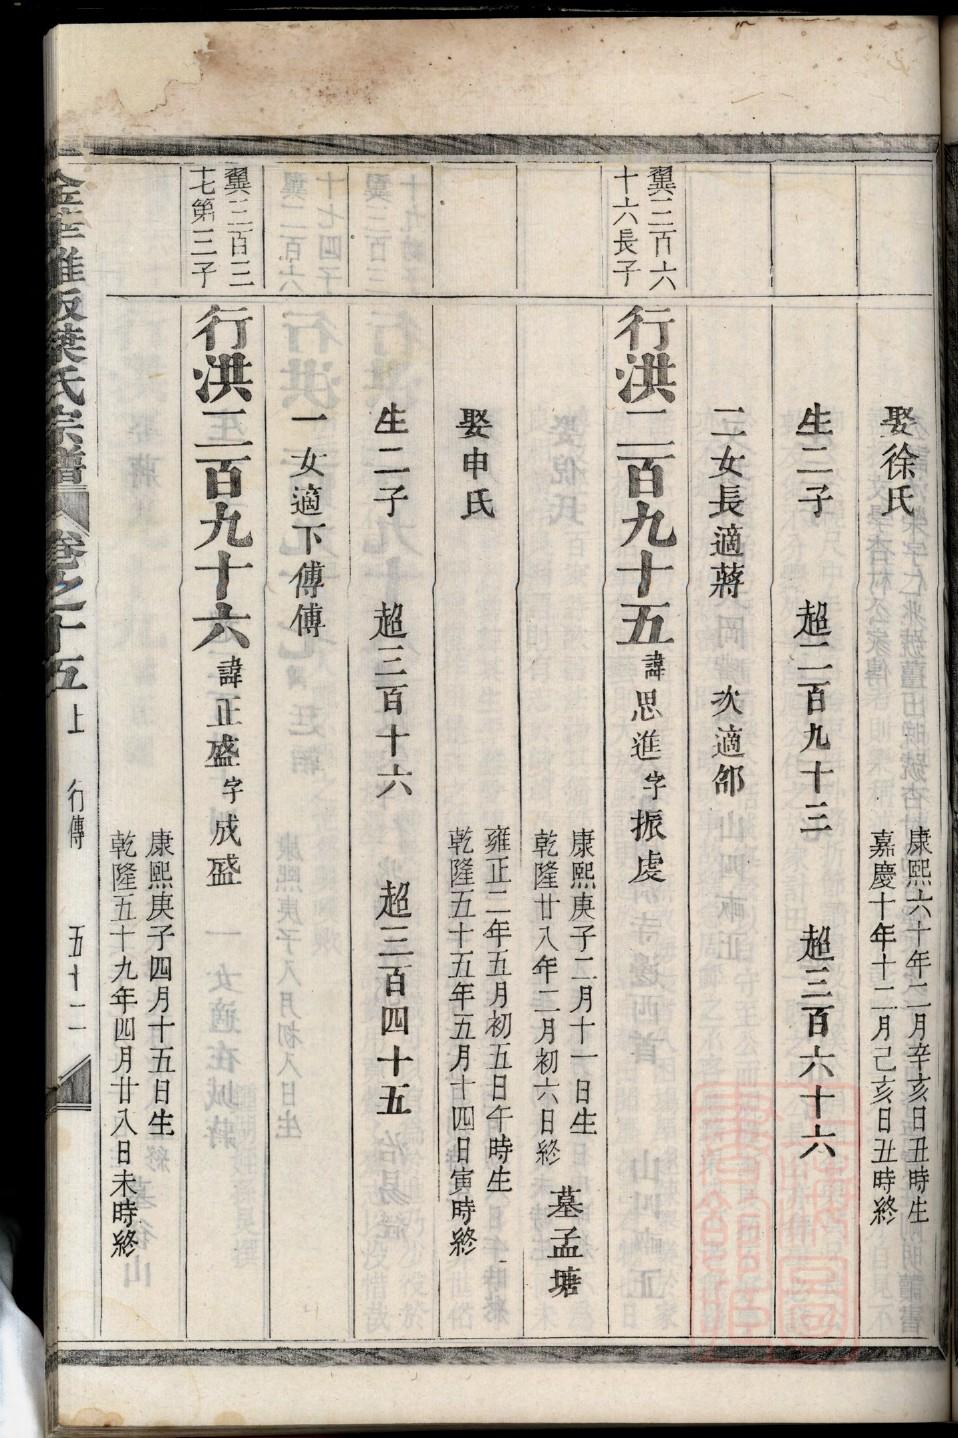 娶徐氏
康熙六十年二月辛亥日丑時生
嘉慶十年十二月己亥日丑時終
生二子 超二百九十三 超三百六十六
二女長適蔣 次適邰
翼三百六
十六長子
行洪二百九十五 諱思進 字振虔
康熙庚子二月十一日生
乾隆廿八年二月初六日終
墓孟塘
娶申氏
雍正二年五月初五日午時生
乾隆五十五年五月十四日寅時終
生二子 超三百十六 超三百四十五
一女適下傅傅
翼三百三
十七第三子
行洪二百九十六 諱正盛 字成盛
康熙庚子四月十五日生
乾隆五十九年四月廿八日未時終
葉氏宗譜 卷之十五上 行傳 五十二